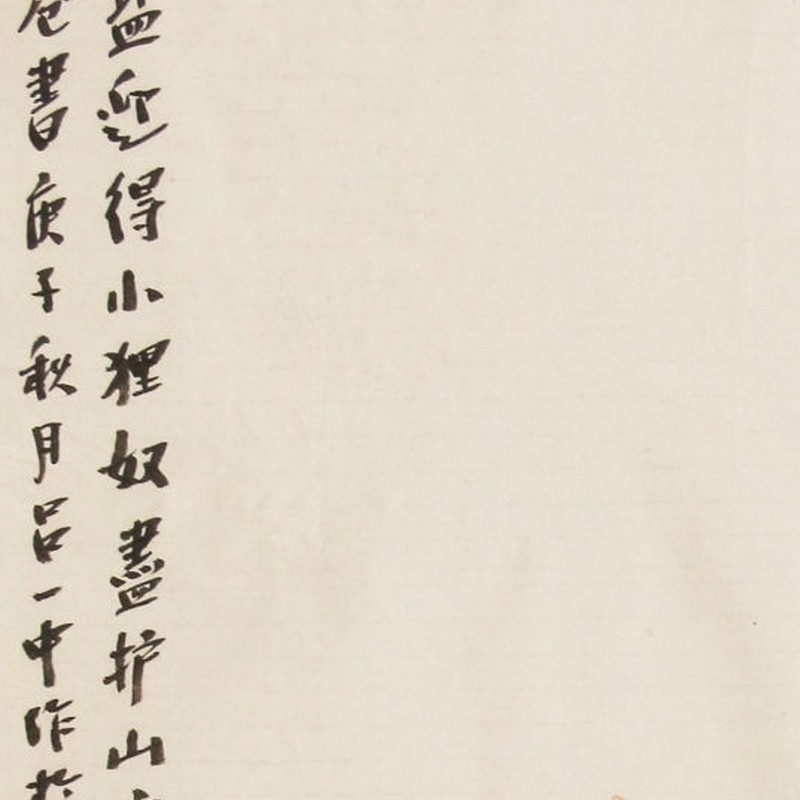 盐迎得小狸奴盡护山
卷書庚子秋月吕一中作於